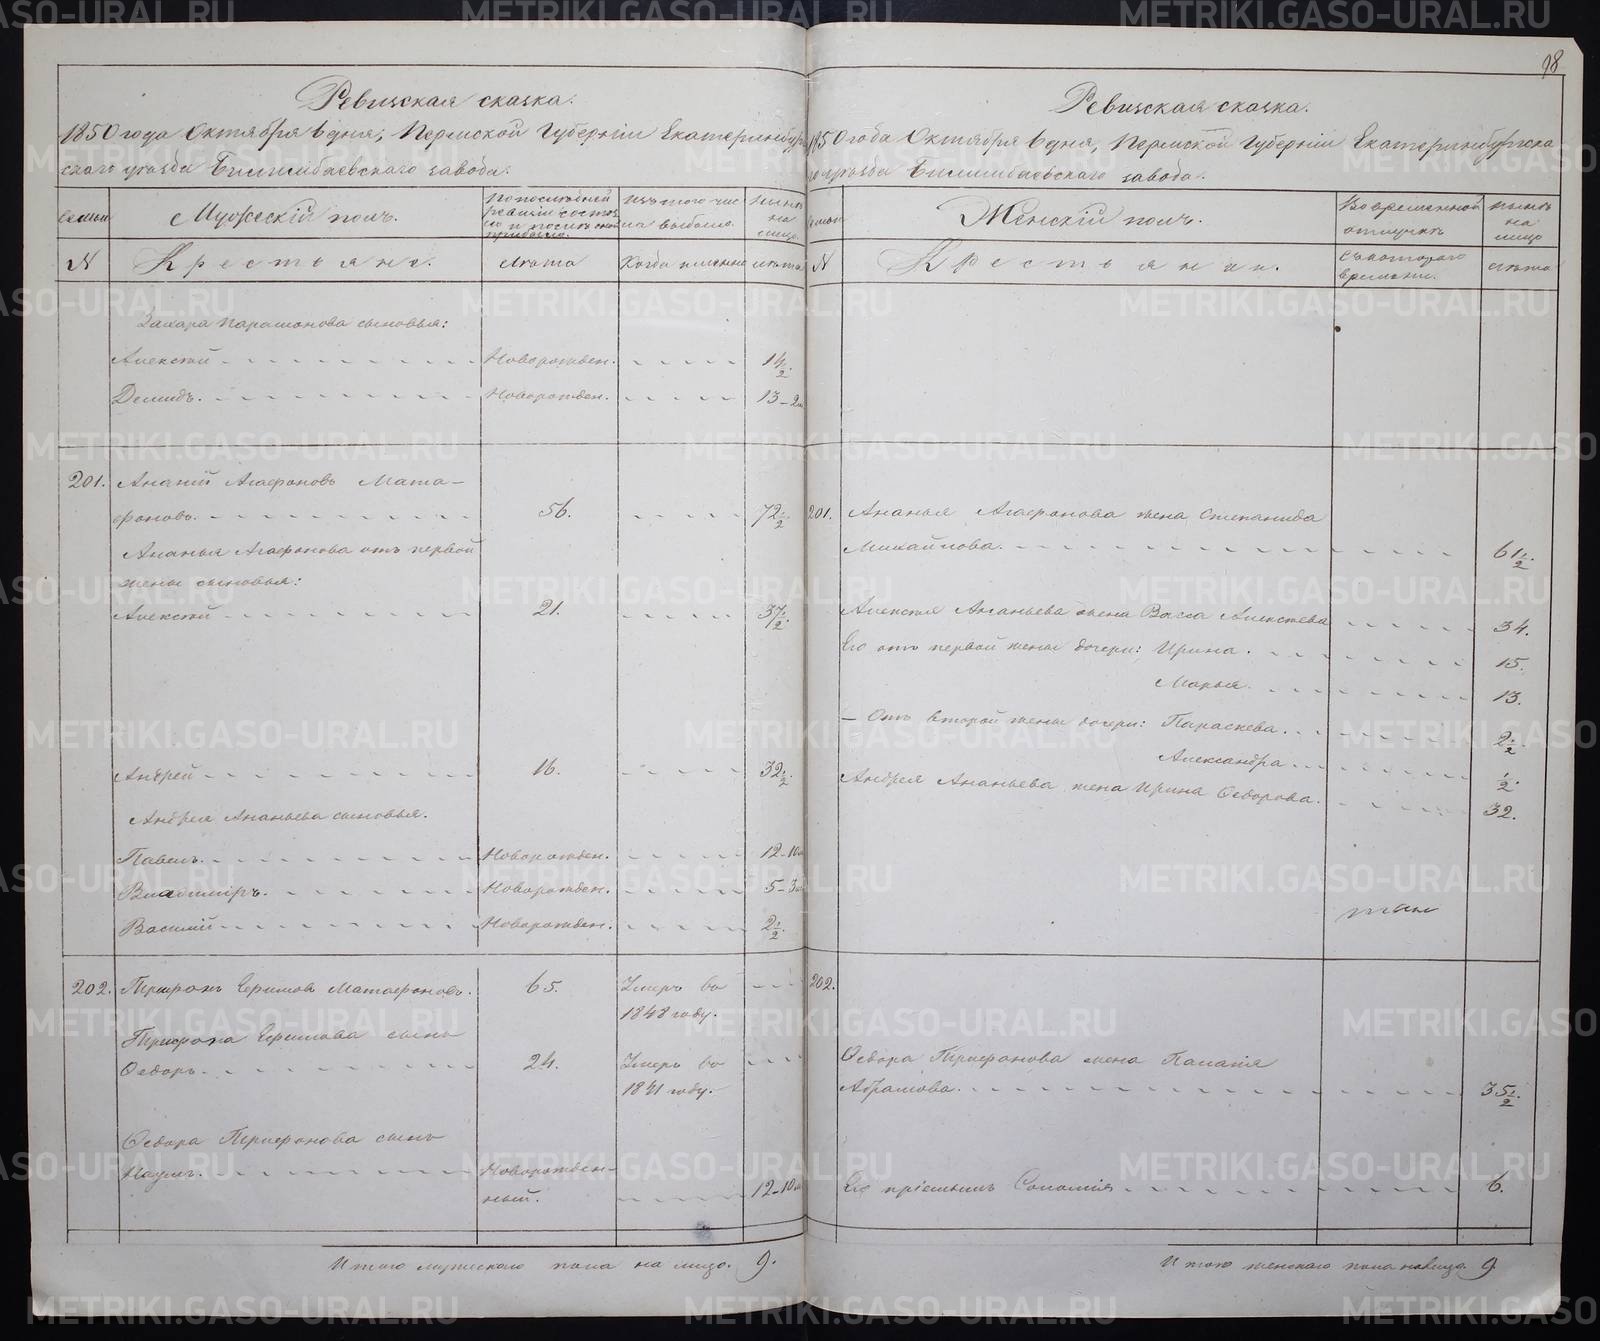 98
Ревизская сказка.
1850 года Октября 6 дня, Пермской Губерніи Екатеринбург
скаго уѣзда Билимбаевскаго завода.
Семьи
Мужескій полъ.
По последней ревизіи состоя
ло и после оной прибыло.
Изъ того чис
ла выбыло.
Нынѣ на лицо
N
Крестьяне.
Лѣта
Когда именно
лѣта
Захара Парамонова сыновья:
Алексѣй Новорожден. 14 1/2.
Демидъ. Новорожден. 13-2м
201. Ананій Агафоновъ Мата-
фоновъ. 56. 72 1/2
Ананья Агафонова отъ первой
жены сыновья:
Алексѣй 21. 37 1/2.
Андрей 16. 32 1/2.
Андрея Ананьева сыновья.
Павелъ. Новорожден. 12-10м
Владиміръ. Новорожден. 5-3м
Василій Новорожден. 2 1/2.
202. Трифонъ Ефимовъ Матафоновъ. 65. Умеръ во
1848 году.
Трифона Ефимова сынъ
Ѳедоръ. 24. Умеръ во
1841 году.
Ѳедора Трифонова сынъ
Наумъ. Новорожден-
ный. 12-10м
Итого мужескаго пола на лицо. 9.
Ревизская сказка.
1850 года Октября 6 дня, Пермской Губерніи Екатеринбургска
го уѣзда Билимбаевскаго завода.
Семьи
Женскій полъ.
Во временной
отлучкѣ
Нынѣ
на
лицо
N
Крестьянки.
Съ котораго
времени.
лѣта
201. Ананья Агафонова жена Степанида
Михайлова. 61 1/2.
Алексѣя Ананьева жена Васса Алексѣева 34.
Его отъ первой жены дочери: Ирина. 15.
Марья. 13.
— Отъ второй жены дочери: Параскева. 2 1/2
Александра 1/2.
Андрея Ананьева жена Ирина Ѳедорова. 32.
202.
Ѳедора Трифонова жена Палагія
Абрамова. 35 1/2.
Его пріемышъ Соломія 6.
Итого женскаго пола на лицо 9
METRIKI.GASO-URAL.RU